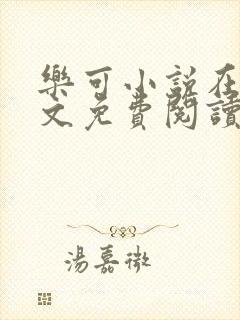 樂可小說在
文免費閱讀
湯嘉微